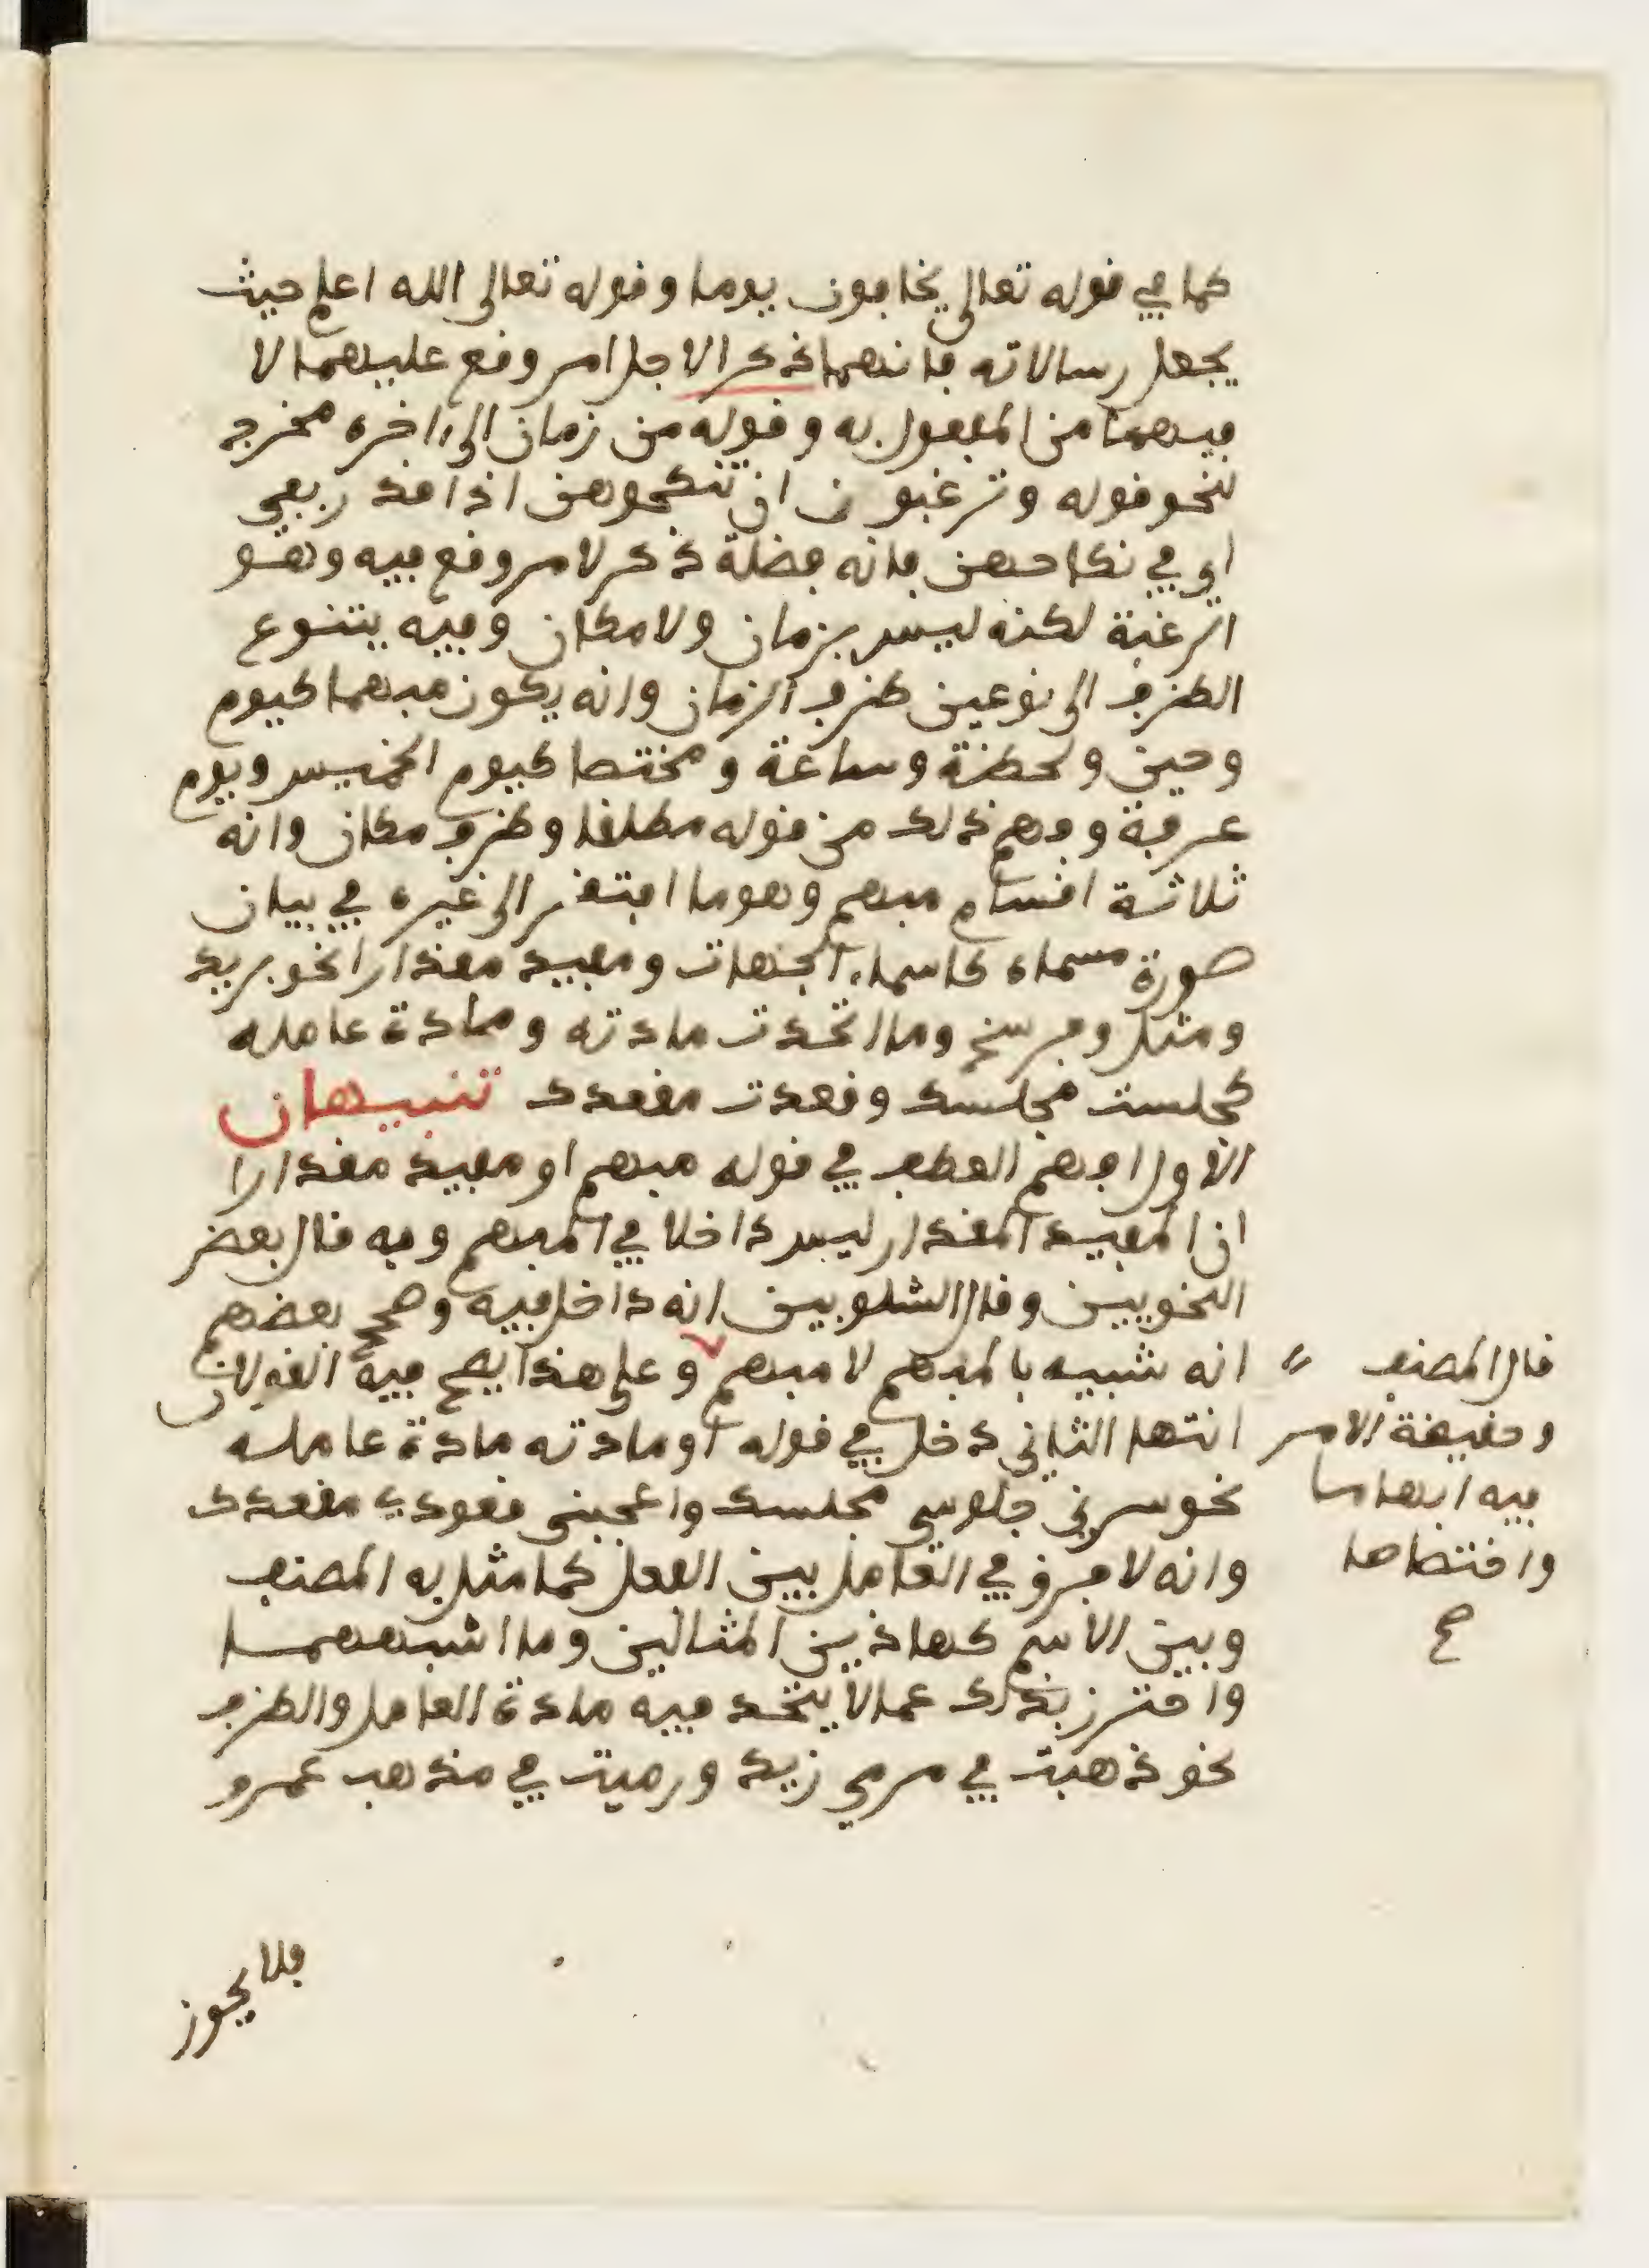 كما في قوله تعالى يخافون يوما وقوله تعالى الله اعلم حيث
يجعل رسالاته فانهما ذكرا لاجل امر وقع عليهما لا
فيهما من المفعول به وقوله من زمان الى ءاخره مخرج
لنحو قوله وترغبون ان تنكحوهن اذا قدر بفي
اي في نكاحهن فانه فضلة ذكر لامر وقع فيه وهو
الرغبة لكنه ليس بزمان ولا مكان وفيه يتنوع
الظرف الى نوعين ظرف الزمان وانه يكون مبهما كيوم
وحين ولحظة وساعة ومختصا كيوم الخميس ويوم
عرفة وفهم ذلك من قوله مطلقا وظرف مكان وانه
ثلاثة اقسام مبهم وهو ما افتقر الى غيره في بيان
صورة مسماه كاسماء الجهات ومفيد مقدارا نحو بريد
وميل وفرسخ وما اتحدت مادته ومادة عامله
كجلست مجلسك وقعدت مقعدك تنبيهان
الاول افهم العطف في قوله مبهم او مفيد مقدارا
ان المفيد المقدار ليس داخلا في المبهم وبه قال بعض
النحويين وقال الشلوبين انه داخل فيه وصحح بعضهم
انه شبيه بالمبهم لا مبهم وعلى هذا يصح فيه القولان
انتها الثاني دخل في قوله او مادته مادة عامله
نحو سرني جلوسي مجلسك واعجبني قعودي مقعدك
وانه لا فرق في العامل بين الفعل كما مثل به المصنف
وبين الاسم كهاذين المثالين وما اشبههما
واحترز بذلك عما لا يتحد فيه مادة العامل والظرف
نحو ذهبت في مرمي زيد ورميت في مذهب عمرو
قال المصنف
وحقيقة الامر
فيه ابهاما
واختصاصا
صح
فلا يجوز